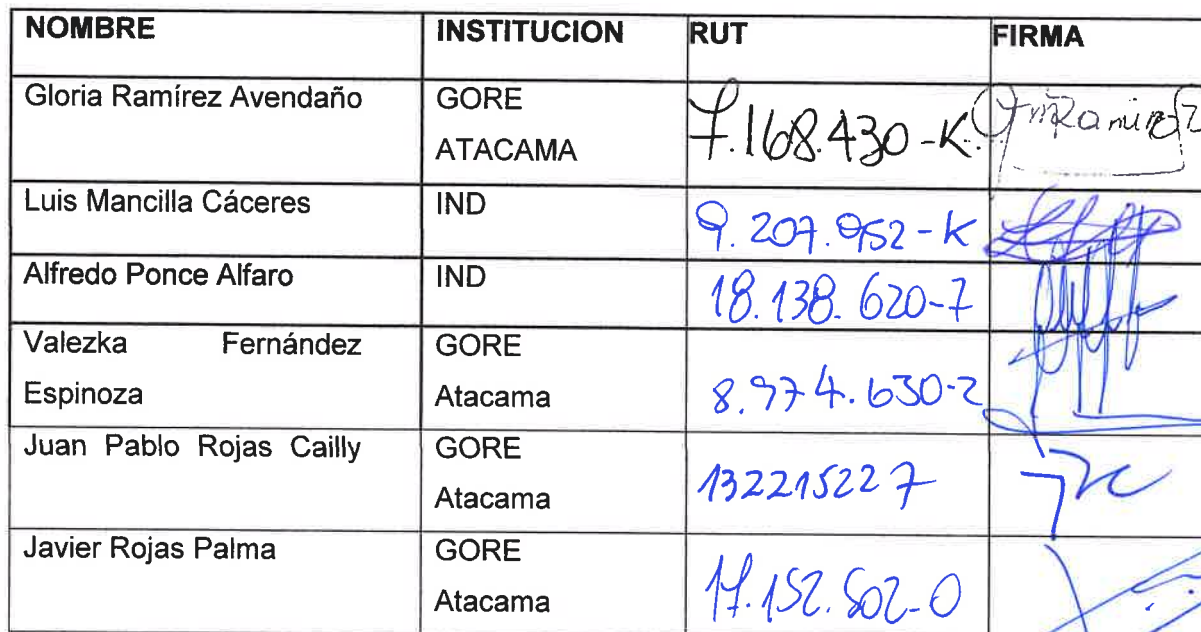 NOMBRE INSTITUCION RUT FIRMA
Gloria Ramírez Avendaño GORE ATACAMA 7.168.430-K GmRamirez
Luis Mancilla Cáceres IND 9.207.952-K
Alfredo Ponce Alfaro IND 18.138.620-7
Valezka Fernández Espinoza GORE Atacama 8.974.630-2
Juan Pablo Rojas Cailly GORE Atacama 132215227
Javier Rojas Palma GORE Atacama 17.152.502-0